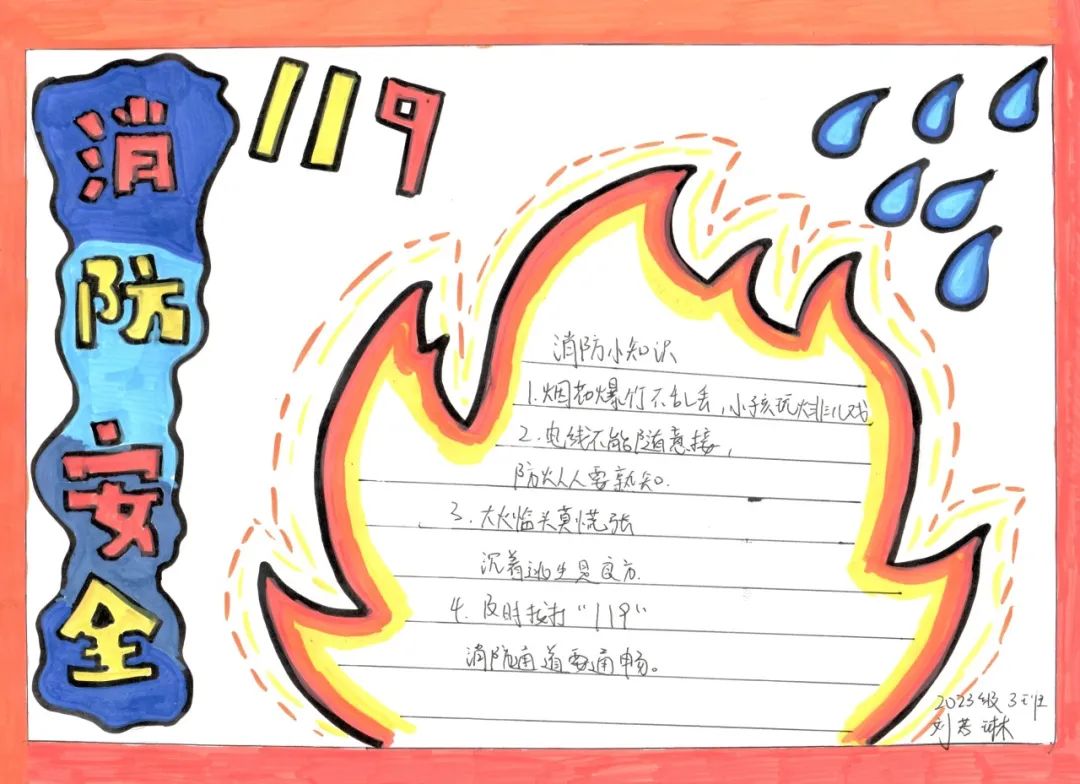 消防安全
119
消防小知识
1.烟花爆竹不乱丢,小孩玩火非儿戏
2.电线不能随意接,
防火人人要熟知.
3.大火临头莫慌张
沉着逃生是良方.
4.及时拨打“119”
消防通道要通畅。
2023级3班
刘 琳